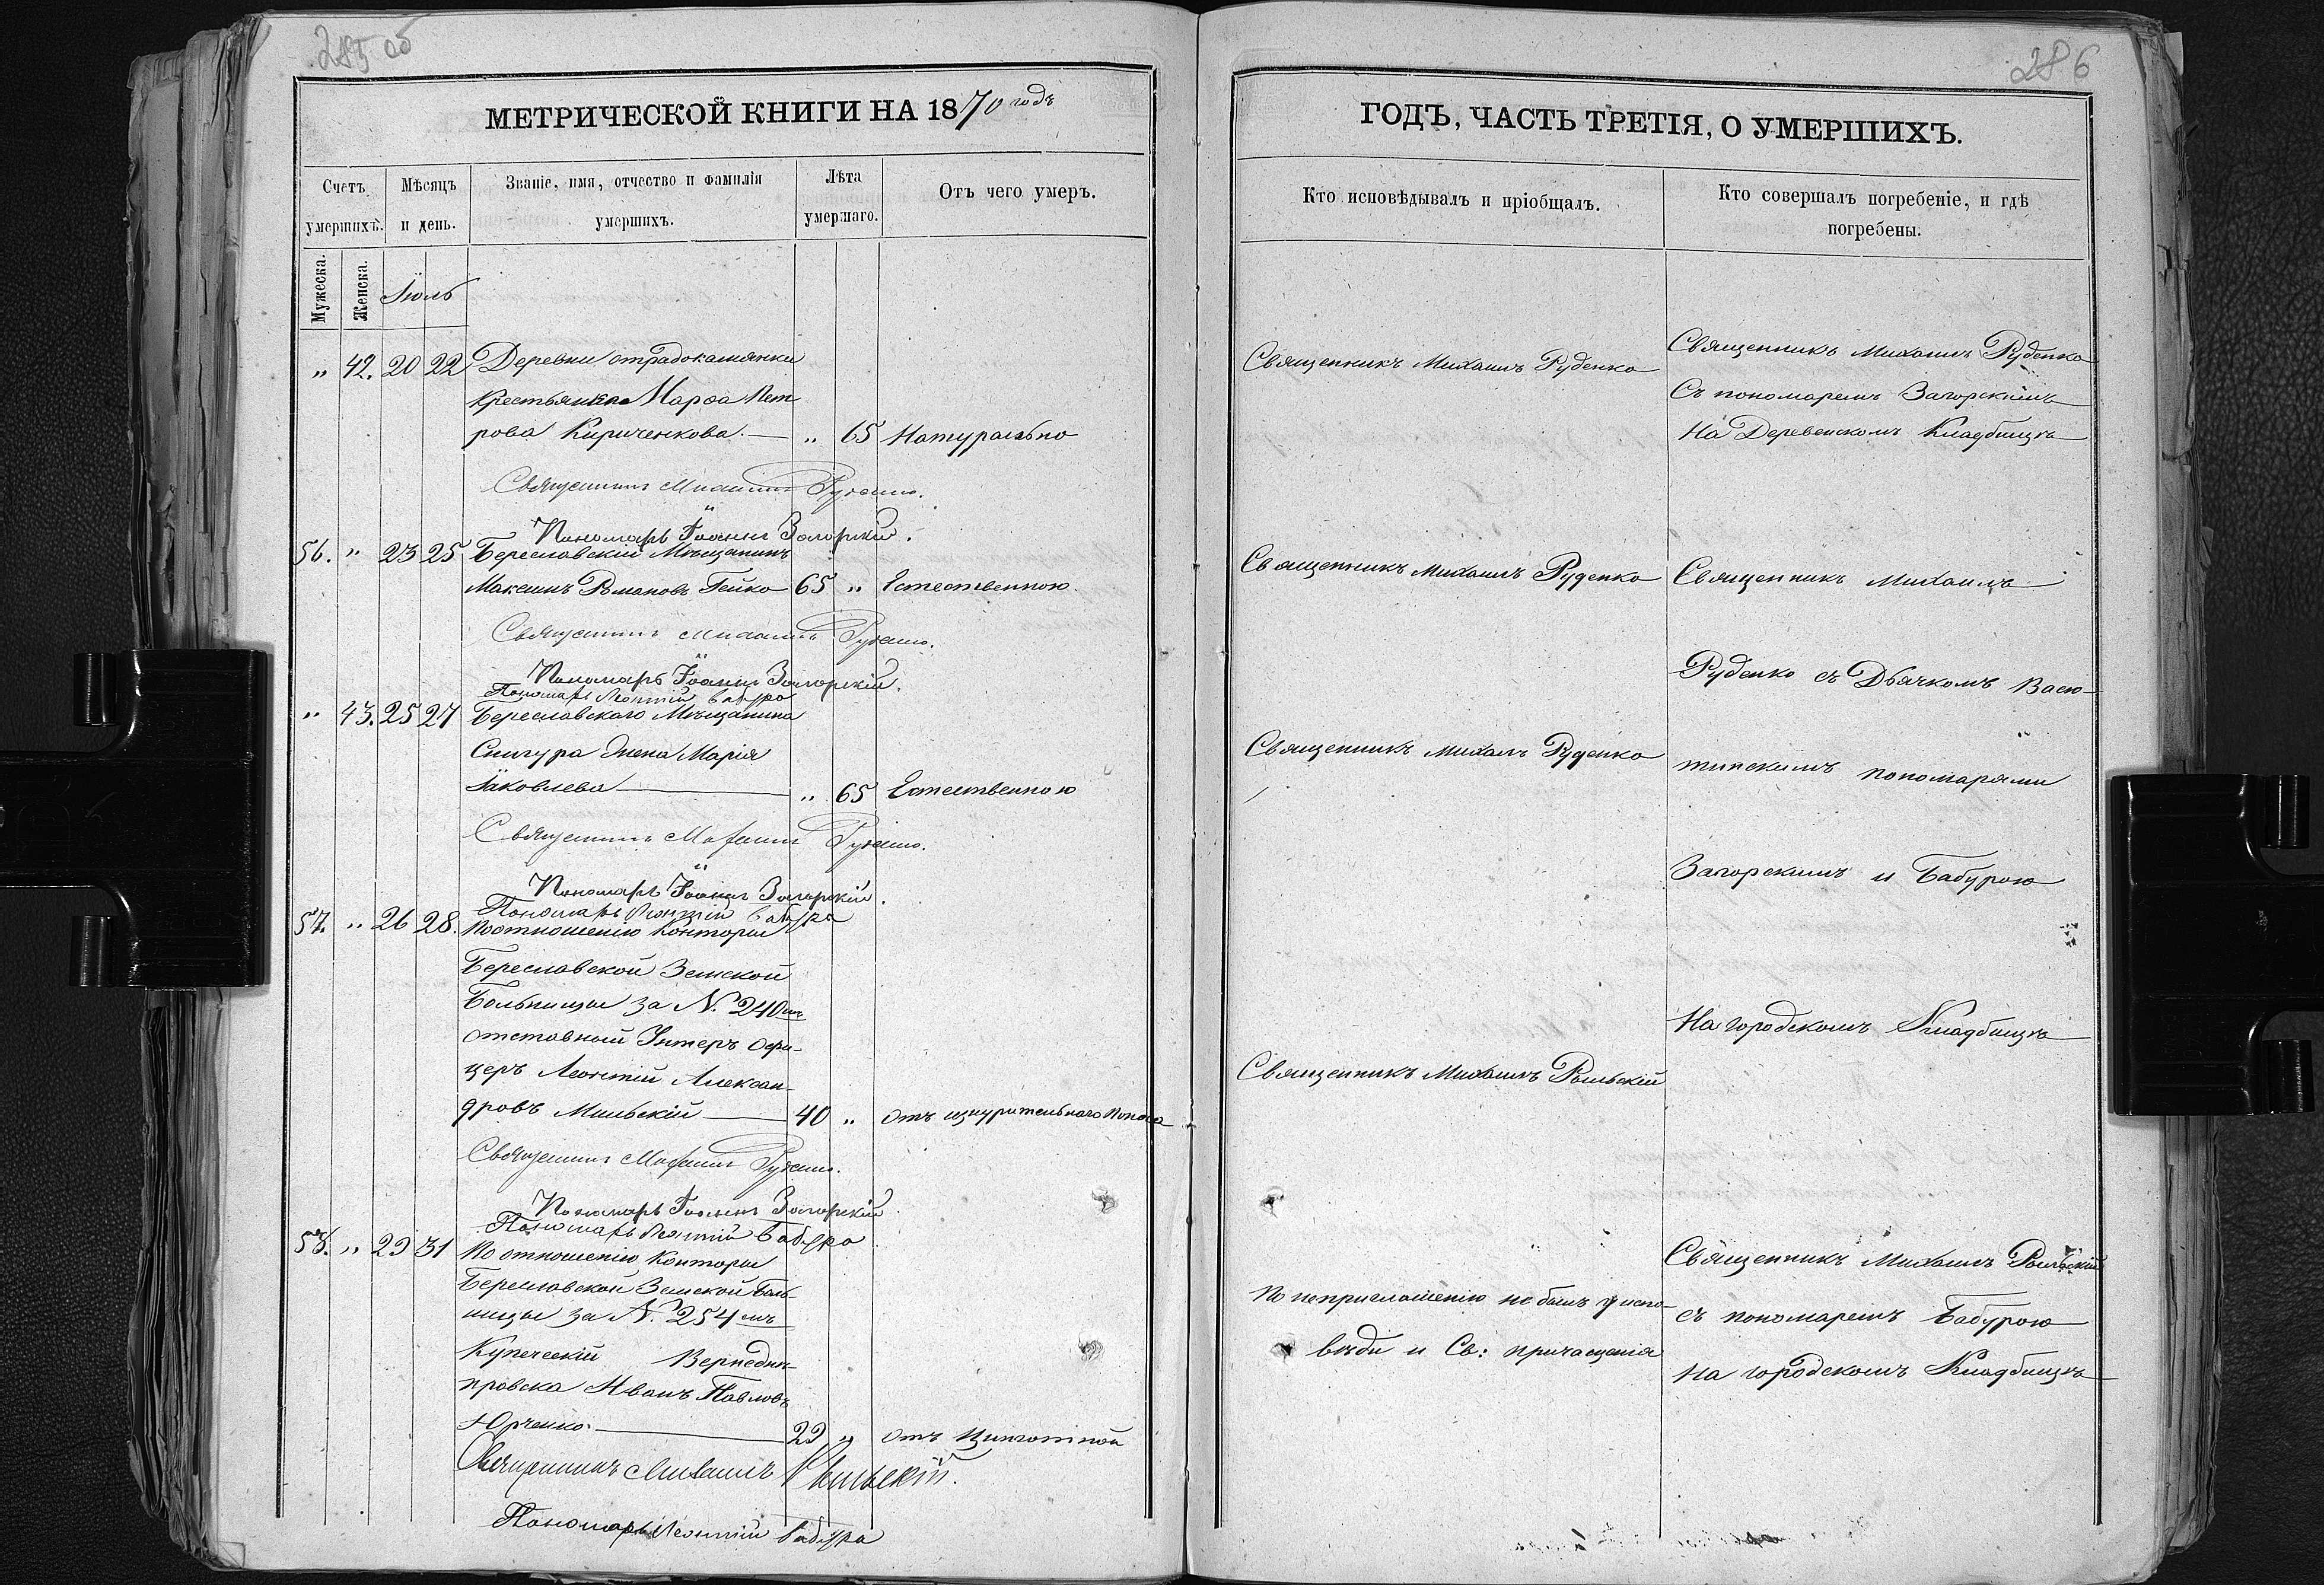 285 об
МЕТРИЧЕСКОЙ КНИГИ НА 1870 годъ
Счетъ умершихъ.
Мѣсяцъ и день.
Званіе, имя, отчество и фамилія умершихъ.
Лѣта умершаго.
Отъ чего умеръ.
Мужеска.
Женска.
Іюль
„ 42. 20 22 Деревни отрадокаменки
крестьянка Марѳа Пет
рова Кириченкова. — „ 65 Натурально
Священникъ Михаилъ Руденко.
Пономарь Іоаннъ Загорскій.
56. „ 23 25 Береславскій Мѣщанинъ
Максимъ Романовъ Гейко 65 „ Естественною
Священникъ Михаилъ Руденко.
Пономарь Іоаннъ Загорскій.
Пономарь Леонтій Бабура
„ 43. 25 27 Береславскаго Мѣщанина
Снигура Жена Марія
Іаковлева — „ 65 Естественною
Священникъ Михаилъ Руденко.
Пономарь Іоаннъ Загорскій.
Пономарь Леонтій Бабура
57. „ 26 28. По отношенію Конторы
Береславской Земской
Больницы за N. 240мъ
отставной Унтеръ офи-
церъ Леонтій Алексан-
дровъ Мильскій — 40 „ отъ изнурительнаго поноса
Священникъ Михаилъ Руденко.
Пономарь Іоаннъ Загорскій
Пономарь Леонтій Бабура
58. „ 29 31 По отношенію Конторы
Береславской Земской Боль-
ницы за N. 254мъ
Купеческій Верхнедне-
провска Иванъ Павловъ
Юрченко. — 29 „ отъ Цынготной
Священникъ Михаилъ Рыльскій.
Пономарь Леонтій Бабура
286
ГОДЪ, ЧАСТЬ ТРЕТІЯ, О УМЕРШИХЪ.
Кто исповѣдывалъ и пріобщалъ.
Кто совершалъ погребеніе, и гдѣ погребены.
Священникъ Михаилъ Руденко
Священникъ Михаилъ Руденко
Съ пономаремъ Загорскимъ
На Деревенскомъ Кладбищѣ
Священникъ Михаилъ Руденко
Священникъ Михаилъ
Руденко съ Дьячкомъ Васю-
Священникъ Михаилъ Руденко
тинскимъ пономарями
Загорскимъ и Бабурою
На городскомъ Кладбищѣ
Священникъ Михаилъ Рыльскій
Священникъ Михаилъ Рыльскій
По неприглашенію не былъ у испо-
съ пономаремъ Бабурою
вѣди и Св: причащенія
на городскомъ Кладбищѣ